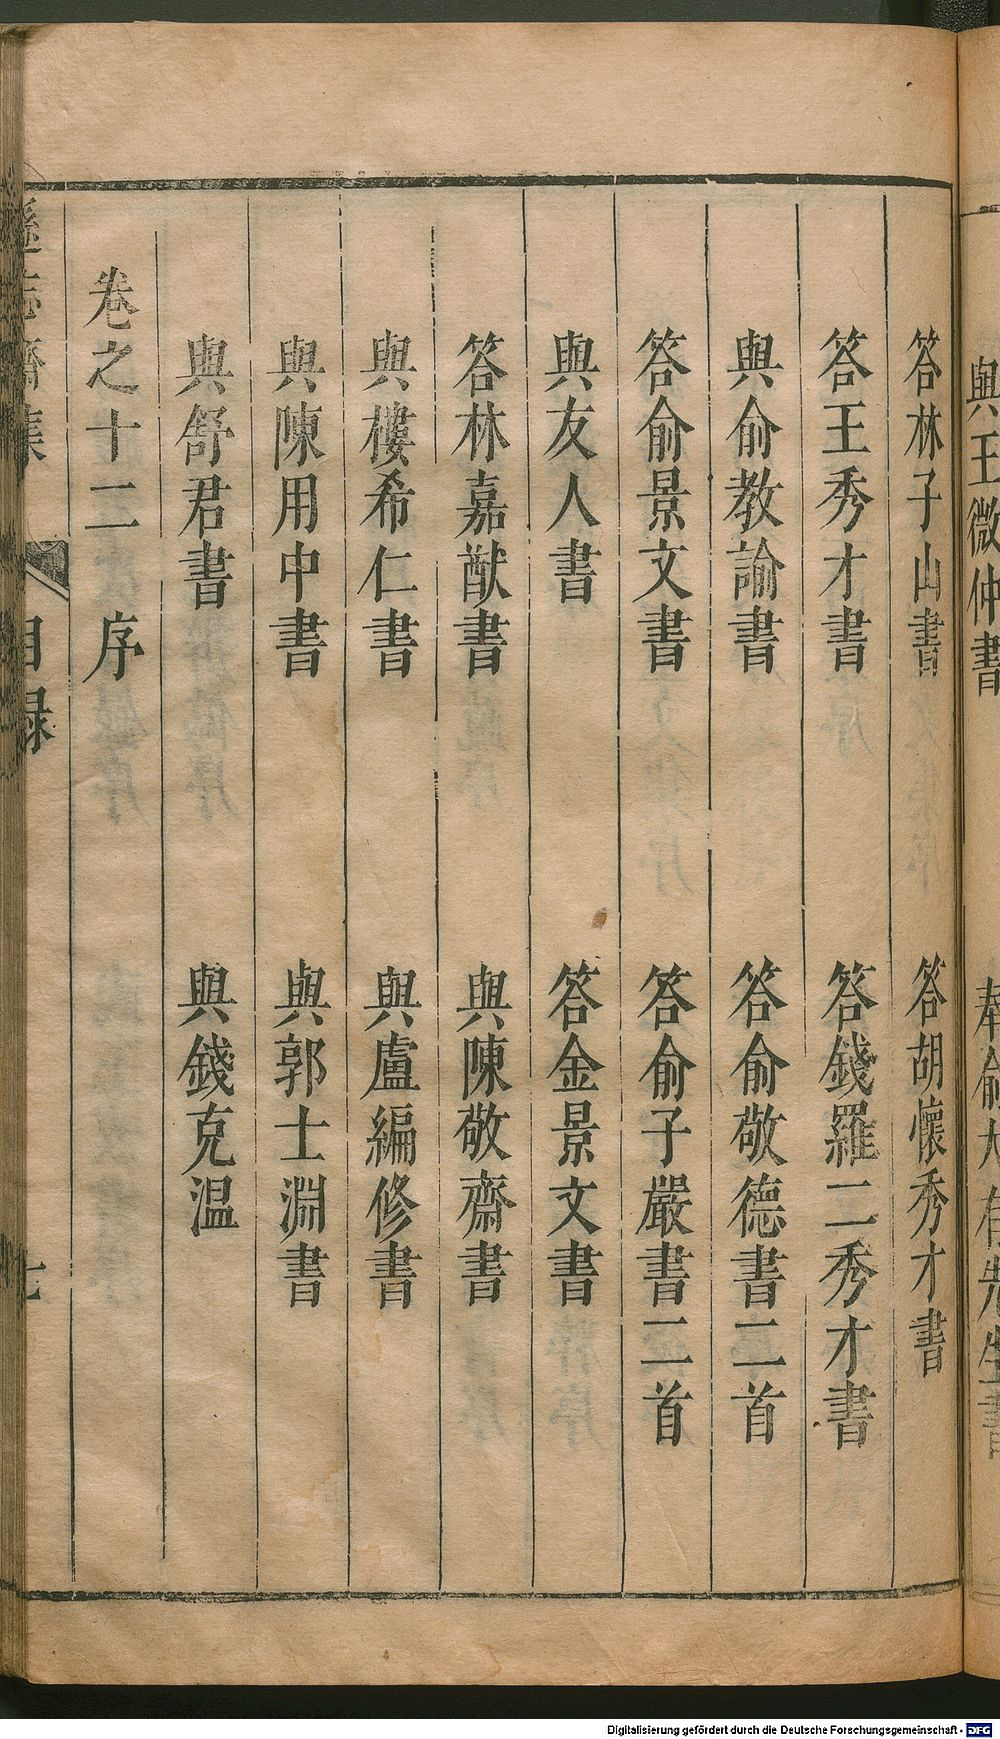 與王微仲書　奉俞大有先生書
答林子山書　答胡懷秀才書
答王秀才書　答錢羅二秀才書
與俞教諭書　答俞敬德書二首
答俞景文書　答俞子嚴書二首
與友人書　答金景文書
答林嘉猷書　與陳敬齋書
與樓希仁書　與盧編修書
與陳用中書　與郭士淵書
與舒君書　與錢克温
卷之十二　序
遜志齋集　目録　七
Digitalisierung gefördert durch die Deutsche Forschungsgemeinschaft - DFG